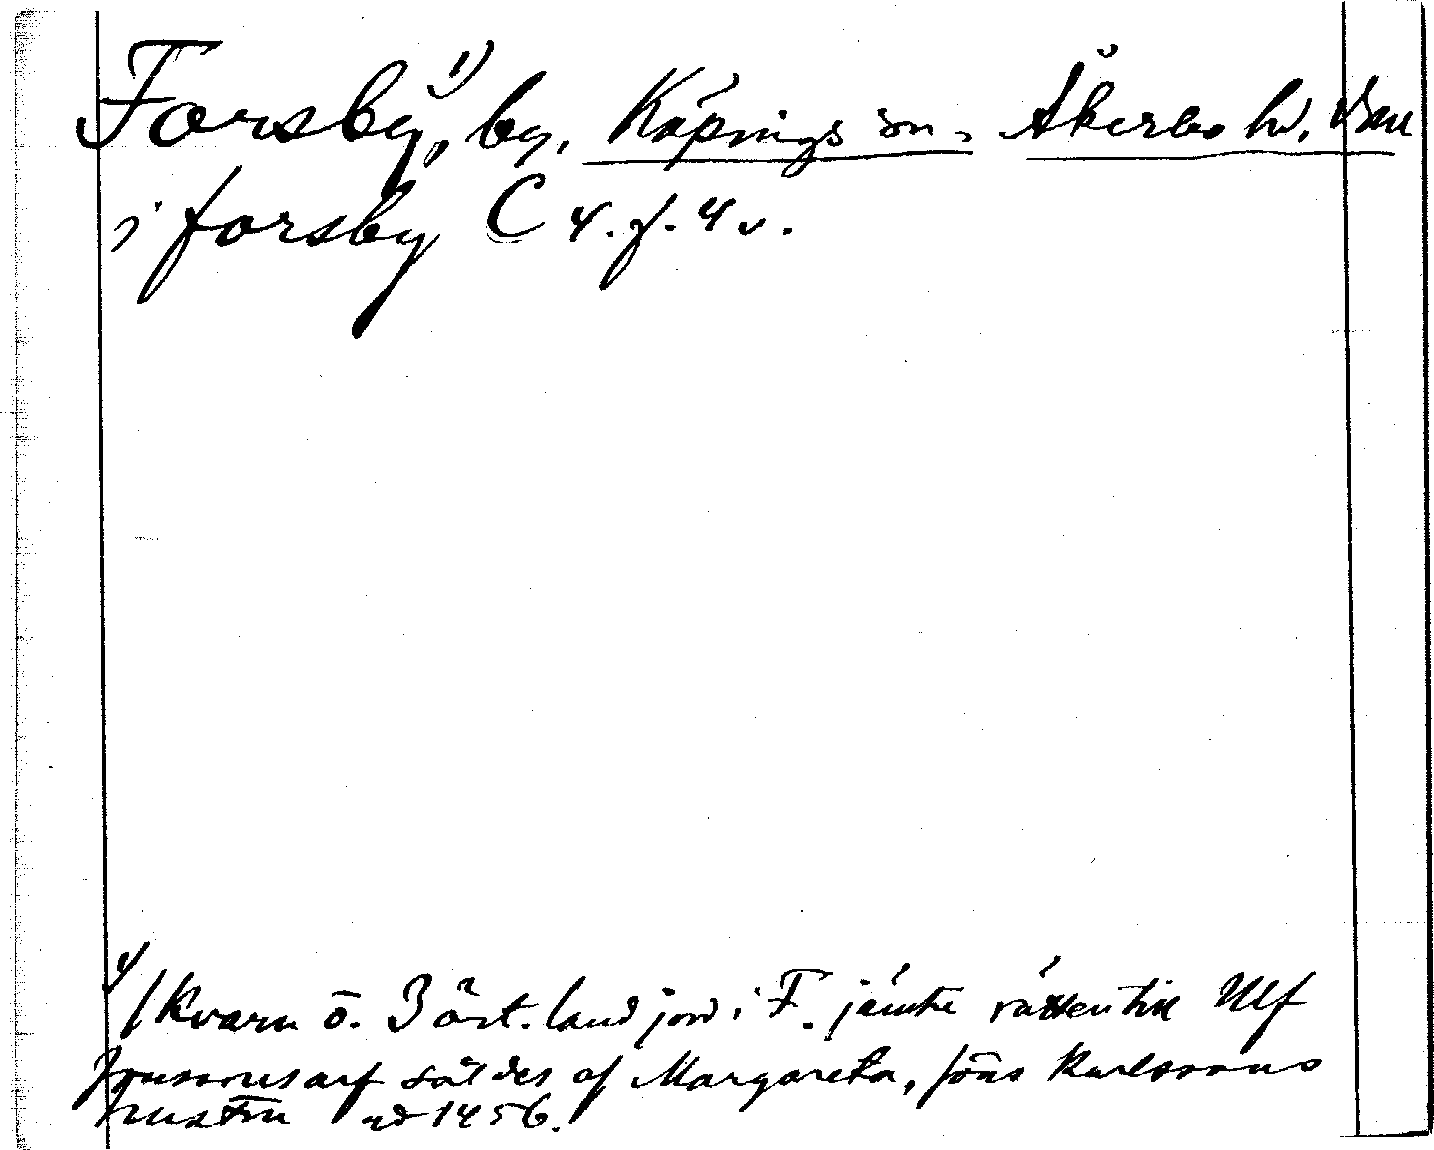 Forsby,¹⁾ by, Köpings sn, Åkerbo hd,
i forsby C 4. f. 4 v.
1) 1 kvarn o. 3 örtland jord i F. jämte rätten till Ulf
Jonssons arf såldes af Margareta, Jöns Karlssons
hustru 1456.